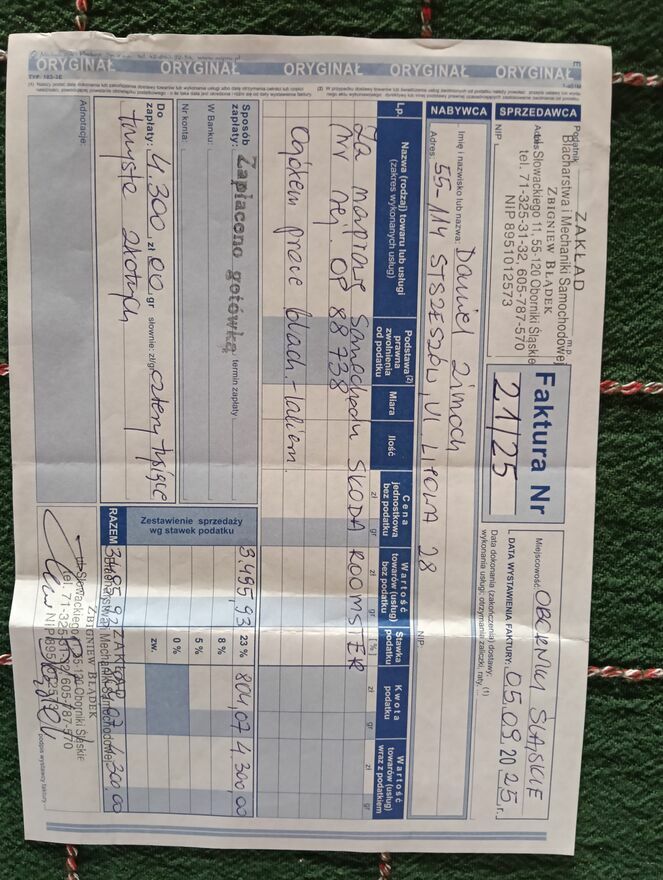 ORYGINAŁ ORYGINAŁ ORYGINAŁ ORYGINAŁ ORYGINAŁ
SPRZEDAWCA
Podatnik
m.p.
ZAKŁAD
Blacharstwa i Mechaniki Samochodowej
ZBIGNIEW BŁĄDEK
Adres
Słowackiego 11, 55-120 Oborniki Śląskie
tel. 71-325-31-32, 605-787-570
NIP 8951012573
NIP
Faktura Nr
21/25
Miejscowość: OBORNIKI ŚLĄSKIE
DATA WYSTAWIENIA FAKTURY: 05.09 2025 r.
Data dokonania (zakończenia) dostawy:
wykonania usługi; otrzymania zaliczki, raty... (1)
NABYWCA
Imię i nazwisko lub nazwa: Daniel Zimoch
Adres: 55-114 STSZESZÓW, Ul LIPOWA 28
NIP:
Lp.
Nazwa (rodzaj) towaru lub usługi
(zakres wykonanych usług)
Podstawa (2)
prawna
zwolnienia
od podatku
Miara
Ilość
Cena
jednostkowa
bez podatku
Wartość
towarów (usług)
bez podatku
Stawka
podatku
Kwota
podatku
Wartość
towarów (usług)
wraz z podatkiem
zł gr zł gr [%] zł gr zł gr
Za naprawę samochodu SKODA ROOMSTER
Nr rej. OP 88738
Ogółem prace blach.-lakiern.
Sposób
zapłaty:
Zapłacono gotówką
termin zapłaty
W Banku:
Nr konta:
Zestawienie sprzedaży
wg stawek podatku
3.495,93 23 % 804,07 4.300,00
8 %
5 %
0 %
zw.
Do
zapłaty: 4.300 zł 00 gr słownie: zł/gr cztery tysiące
trzysta złotych
RAZEM
4.300,00
Adnotacje:
ZAKŁAD
Blacharstwa i Mechaniki Samochodowej
ZBIGNIEW BŁĄDEK
ul. Słowackiego 11, 55-120 Oborniki Śląskie
tel. 71-325-31-32, 605-787-570
podpis wystawcy faktury